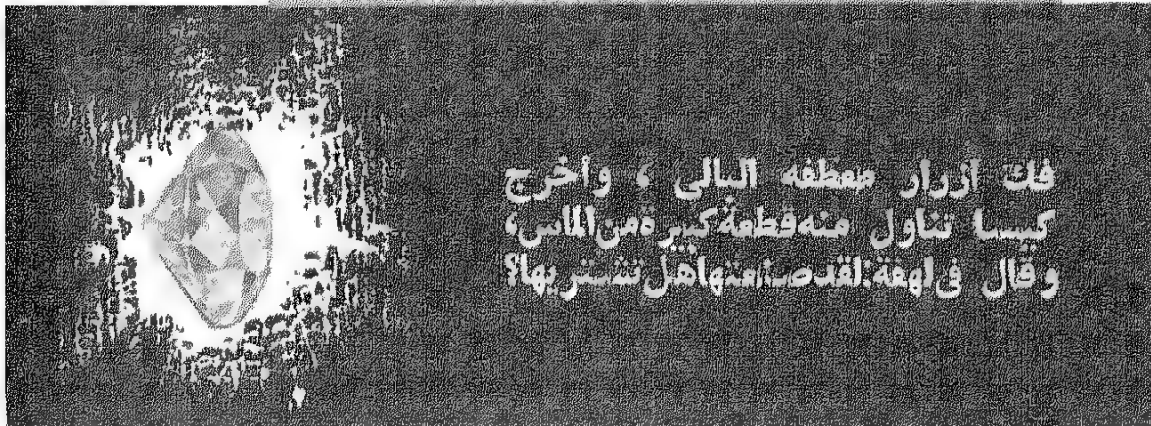 فك أزرار معطفه البالى ، وأخرج
كيسا تناول منه قطعة كبيرة من الماس،
وقال فى لهفة: لقد صنعتها هل تشتريها؟